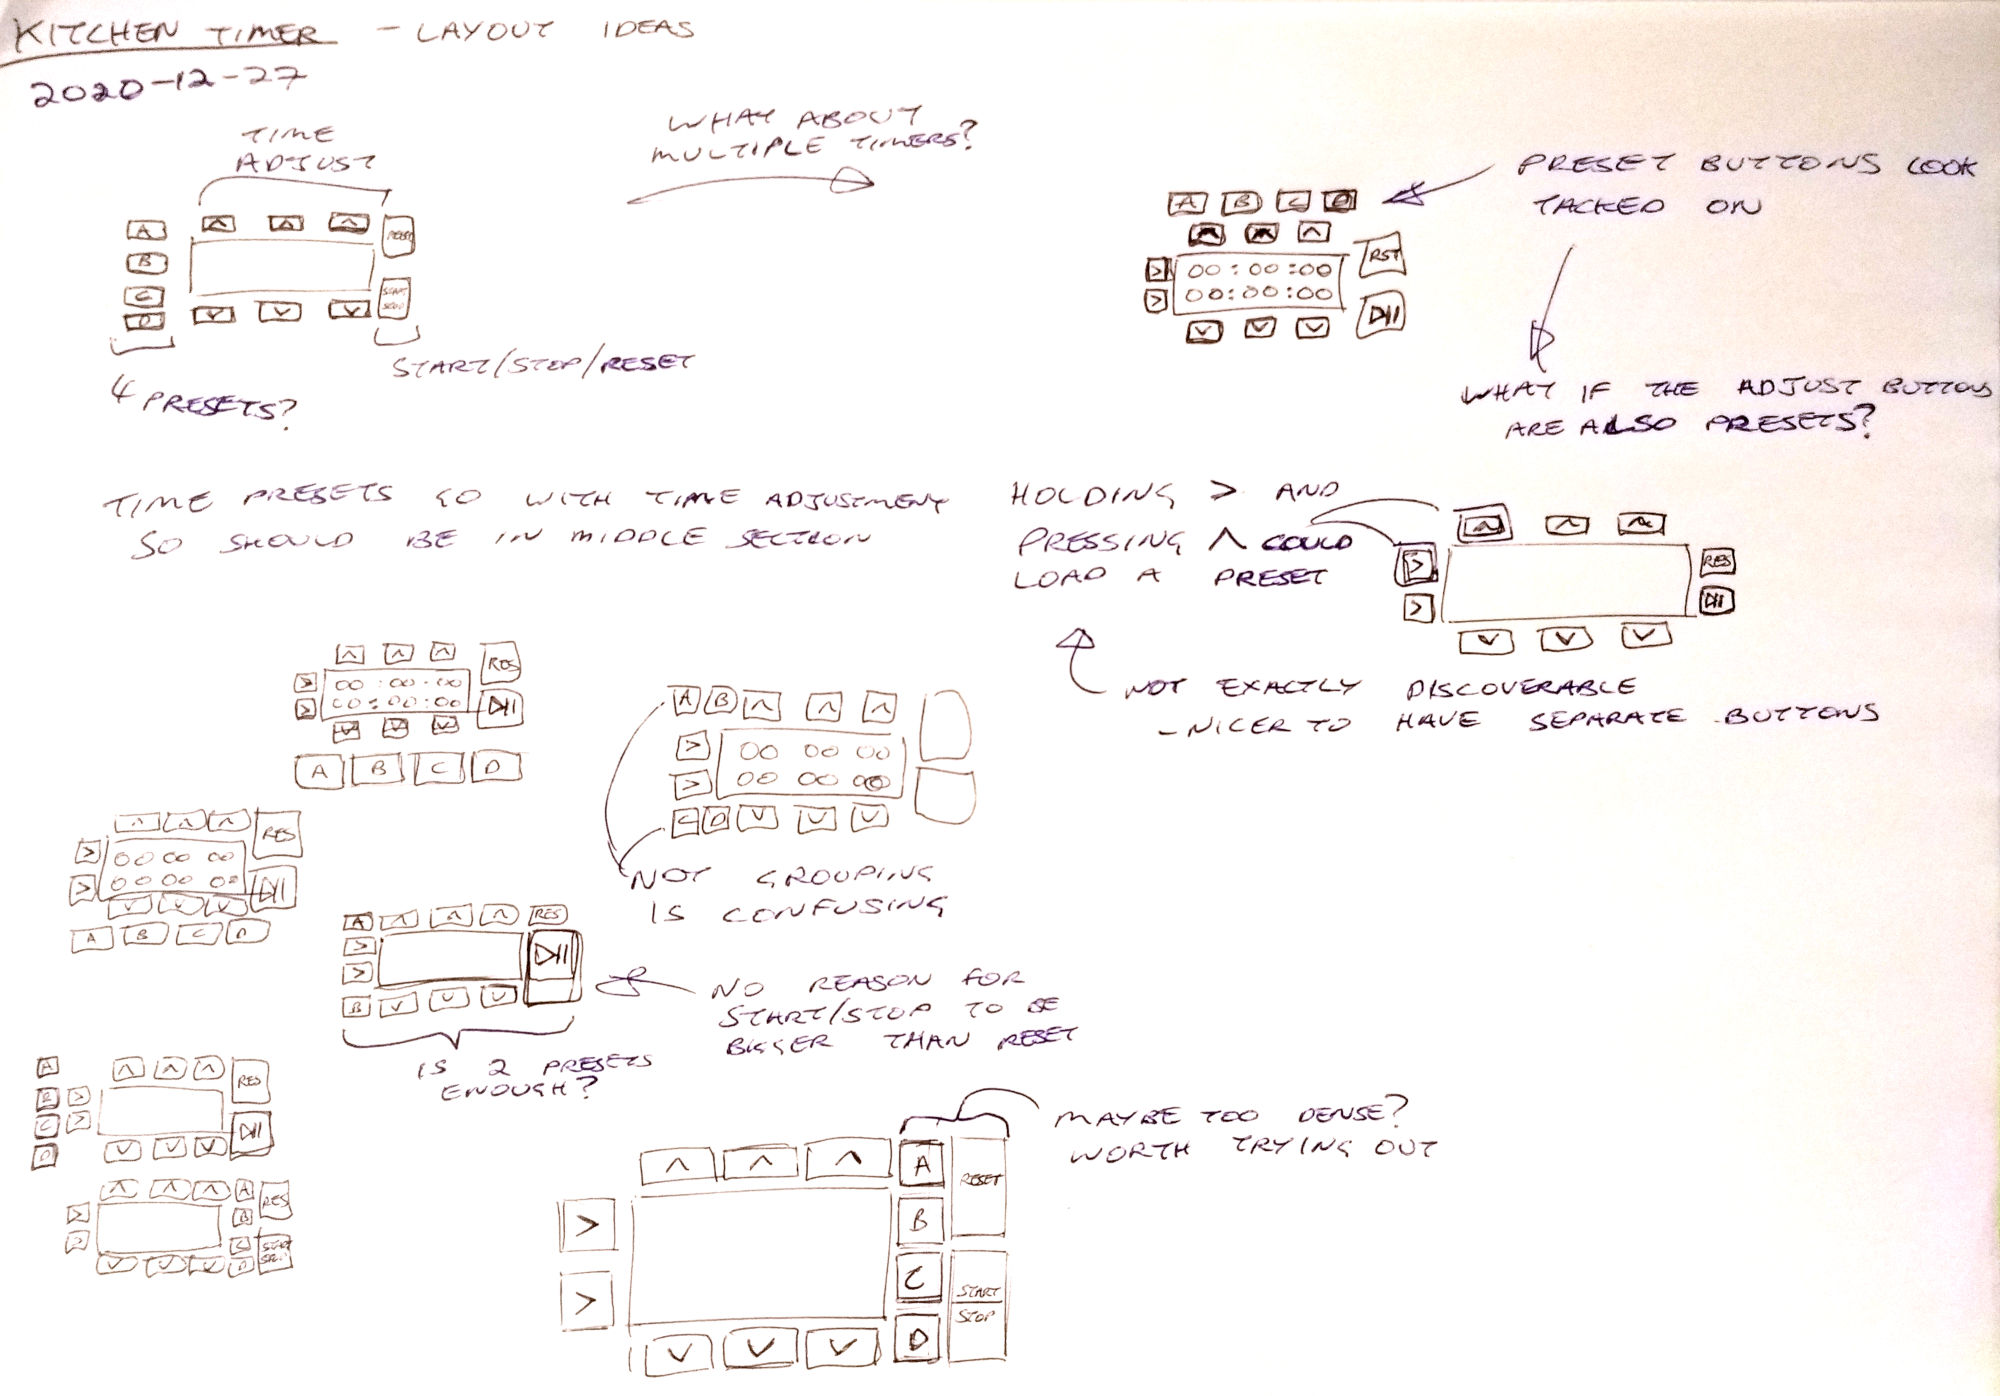 KITCHEN TIMER - LAYOUT IDEAS
2020-12-27
TIME
ADJUST
A
B
C
D
RESET
START
STOP
4 PRESETS?
START/STOP/RESET
WHAT ABOUT
MULTIPLE TIMERS?
A B C D
> 00:00:00
> 00:00:00
RST
PRESET BUTTONS LOOK
TACKED ON
WHAT IF THE ADJUST BUTTONS
ARE ALSO PRESETS?
TIME PRESETS GO WITH TIME ADJUSTMENT
SO SHOULD BE IN MIDDLE SECTION
HOLDING > AND
PRESSING ^ COULD
LOAD A PRESET
>
>
RES
NOT EXACTLY DISCOVERABLE
- NICER TO HAVE SEPARATE BUTTONS
RES
> 00:00:00
> 00:00:00
A B C D
A B
> 00 00 00
> 00 00 00
C D
NOT GROUPING
IS CONFUSING
RES
> 00 00 00
> 00 00 00
A B C D
A RES
>
>
B
NO REASON FOR
START/STOP TO BE
BIGGER THAN RESET
IS 2 PRESETS
ENOUGH?
A
B >
C >
D
RES
A RES
> B
> C START
D
MAYBE TOO DENSE?
WORTH TRYING OUT
A
B
C
D
RESET
START
STOP
>
>